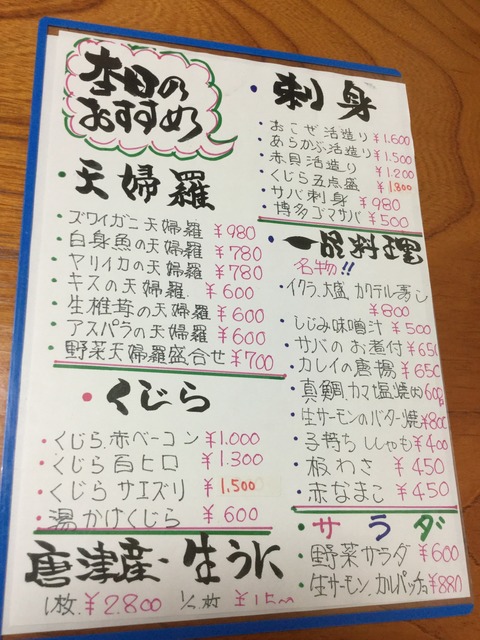 本日の
おすすめ
・天婦羅
ズワイガニ天婦羅 ¥980
白身魚の天婦羅 ¥780
ヤリイカの天婦羅 ¥780
キスの天婦羅 ¥600
生椎茸の天婦羅 ¥600
アスパラの天婦羅 ¥600
野菜天婦羅盛合せ ¥700
・くじら
・くじら.赤ベーコン ¥1.000
・くじら百ヒロ ¥1.300
・くじらサエズリ ¥1.500
・湯かけくじら ¥600
唐津産・生うに
1枚.¥2.800 1/2枚
・刺身
おこぜ活造り ¥1.600
あらかぶ活造り ¥1.500
赤貝活造り ¥1.200
くじら五点盛 ¥1.800
サバ刺身 ¥980
博多ゴマサバ ¥500
一品料理
名物!!
・イクラ.大盛.カクテル寿し
¥800
・しじみ味噌汁 ¥500
・サバのお煮付 ¥650
・カレイの唐揚 ¥650
・真鯛.カマ塩焼 600
・生サーモンのバター焼 ¥800
・子持ちししゃも ¥400
・板わさ ¥450
・赤なまこ ¥450
・サラダ
・野菜サラダ ¥600
・生サーモン.カルパッチョ ¥880